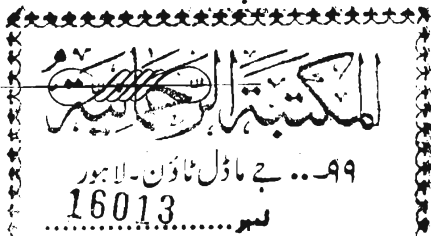 المکتبۃ الرحمانیۃ
۹۹ .. جے ماڈل ٹاؤن ۔ لاہور
نمبر 16013